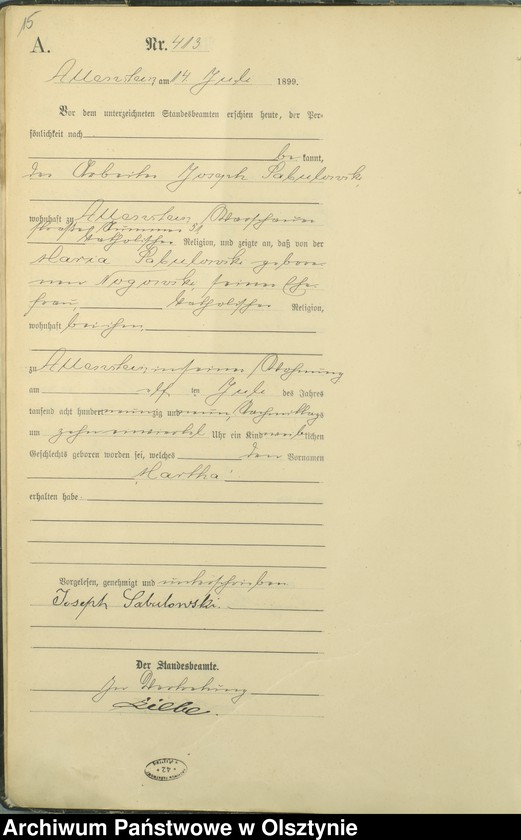 15
A.
Nr. 413
Allenstein am 14 Juli 1899.
Vor dem unterzeichneten Standesbeamten erschien heute, der Per-
sönlichkeit nach
be kannt,
der Arbeiter Joseph Sabulowski
wohnhaft zu Allenstein, Warschauer
straße Nummer 51
katholischer Religion, und zeigte an, daß von der
Maria Sabulowski gebore-
nen Nogowski seiner Ehe-
frau, katholischer Religion,
wohnhaft bei ihm
zu Allenstein in seiner Wohnung
am elf ten Juli des Jahres
tausend acht hundert neunzig und neun, Nachmittags
um zehn einviertel Uhr ein Kind weiblichen
Geschlechts geboren worden sei, welches den Vornamen
Martha
erhalten habe
Vorgelesen, genehmigt und unterschrieben
Joseph Sabulowski.
Der Standesbeamte.
In Vertretung
Archiwum Państwowe w Olsztynie